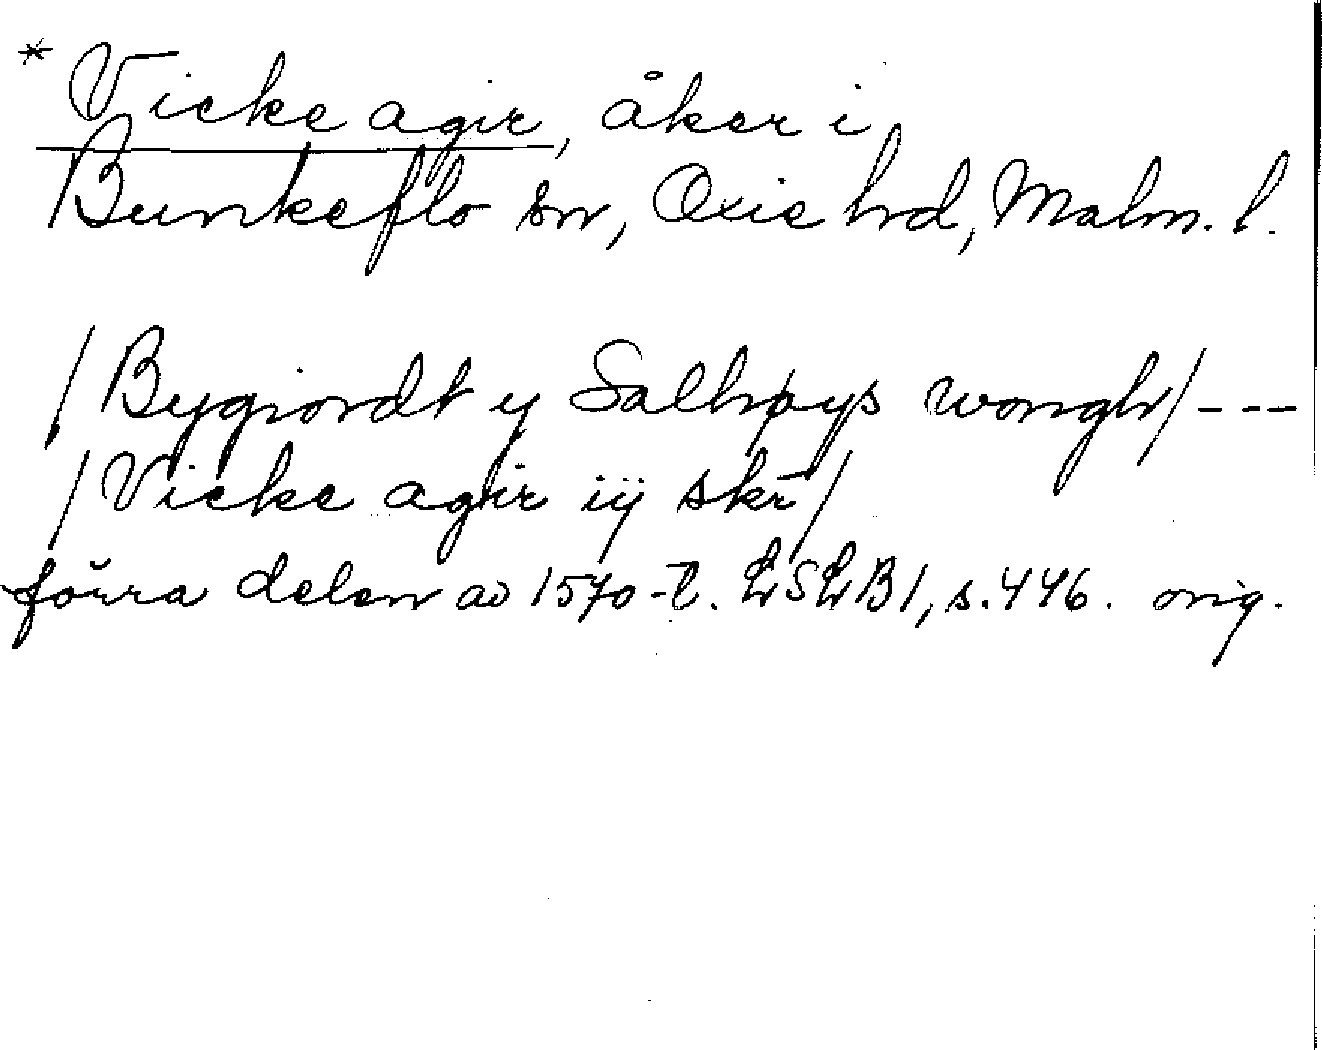 * Vicke agir, åker i
Bunkeflo sn, Oxie hrd, Malm. l.
/Bygiordt y Salhøys wongh/ ---
/Vicke agir iij skr/
förra delen av 1570-t. LSLB1, s. 446. orig.